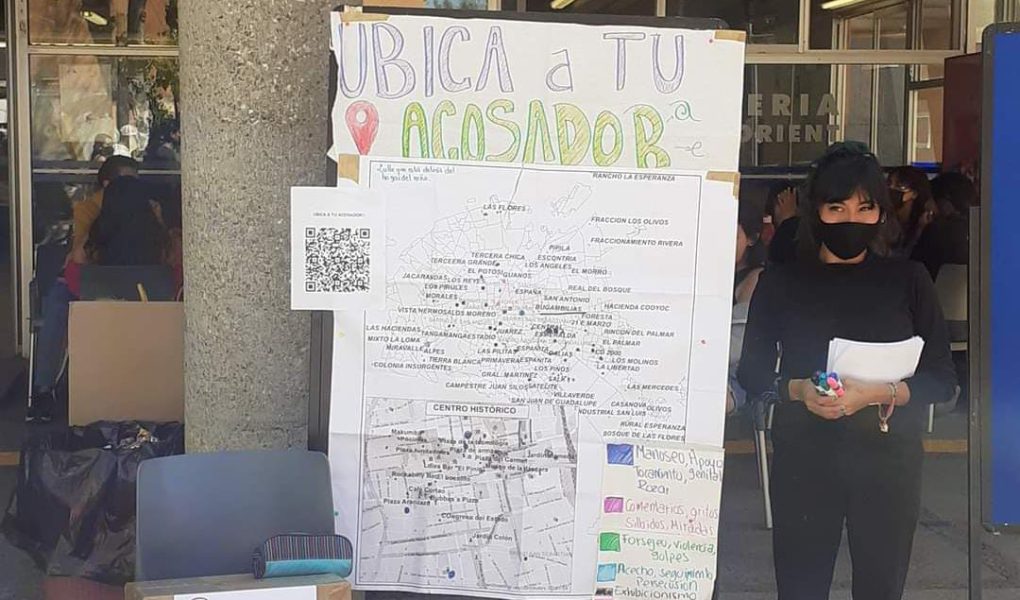 UBICA a TU
ACOSADOR a
-e
Calle que está detrás del
hogar del niño.
UBICA A TU ACOSADOR
ERIA
ORIENT
RANCHO LA ESPERANZA
LAS FLORES
FRACCION LOS OLIVOS
FRACCIONAMIENTO RIVERA
PIPILA
TERCERA CHICA
ESCONTRIA
TERCERA GRANDE
LOS ANGELES
EL POTOSI
GUANOS
EL MORRO
JACARANDAS
LOS REYES
LOS PIRULES
ESPAÑA
REAL DEL BOSQUE
MORALES
SAN ANTONIO
BUGAMBILIAS
HACIENDA CODYOC
VISTA HERMOSA
LOS MORENO
FORESTA
21 E MARZO
LAS HACIENDAS
TANGAMANGA
ESTADIO
JUAREZ
ESMERALDA
RINCON DEL PALMAR
MIXTO LA LOMA
EL PALMAR
MIRAVALLE
ALPES
LAS PILITAS
ESPANITA
DALIAS
CD 2000
TIERRA BLANCA
PRIMAVERA
ESPANITA
LOS MOLINOS
-COLONIA INSURGENTES
LOS PINOS
LA LIBERTAD
GRAL. MARTINEZ
CAMPESTRE
JUAN SILOS
SATELITE
LAS MERCEDES
VILLAVERDE
SAN JUAN DE GUADALUPE
CASANOVA
OLIVOS
INDUSTRIAL SAN LUIS
RURAL ESPERANZA
BOSQUE DE LAS FLORES
CENTRO HISTÓRICO
Plaza de armas
Plaza del Carmen
Café Cortao
Plaza Aranzazu
Congreso del Estado
Jardin Colón
Manoseo, Apoyo
Tocamiento, genital
Rozar
Comentarios, gritos
Silbidos, Miradas
Forsejeu, violencia,
golpes
Acecho, seguimiento
Persecusion
Exhibicionismo